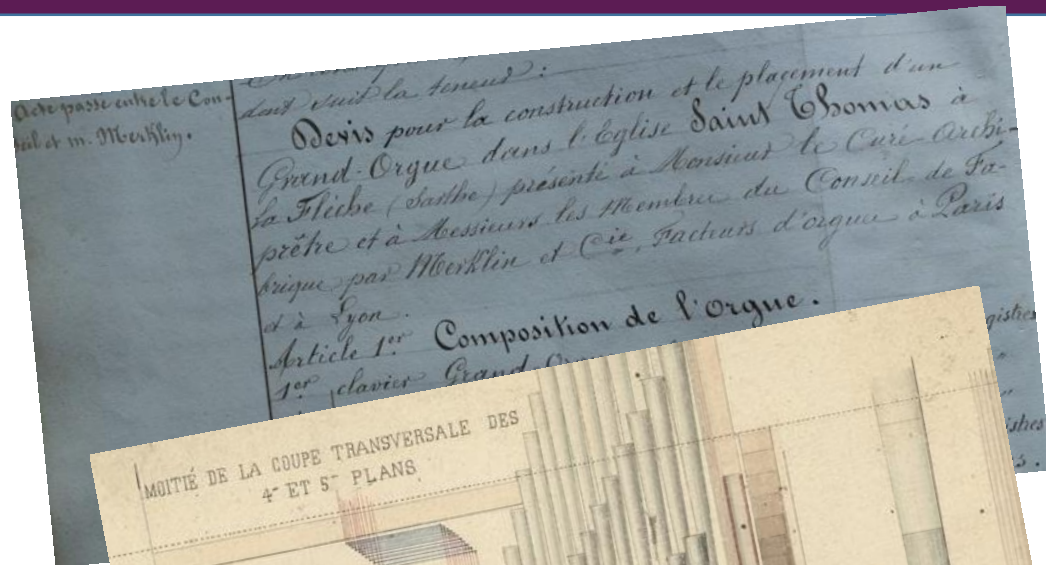 Acte passé entre le Con-
seil et m. Merklin.
dont suit la teneur :
Devis pour la construction et le placement d'un
Grand-Orgue dans l'Eglise Saint Thomas à
la Flèche (Sarthe) présenté à Monsieur le Curé-Archi-
prêtre et à Messieurs les Membres du Conseil de Fa-
brique par Merklin et Cie, Facteurs d'orgues à Paris
et à Lyon.
Article 1er Composition de l'Orgue.
1er clavier Grand-Orgue
MOITIÉ DE LA COUPE TRANSVERSALE DES
4e ET 5e PLANS